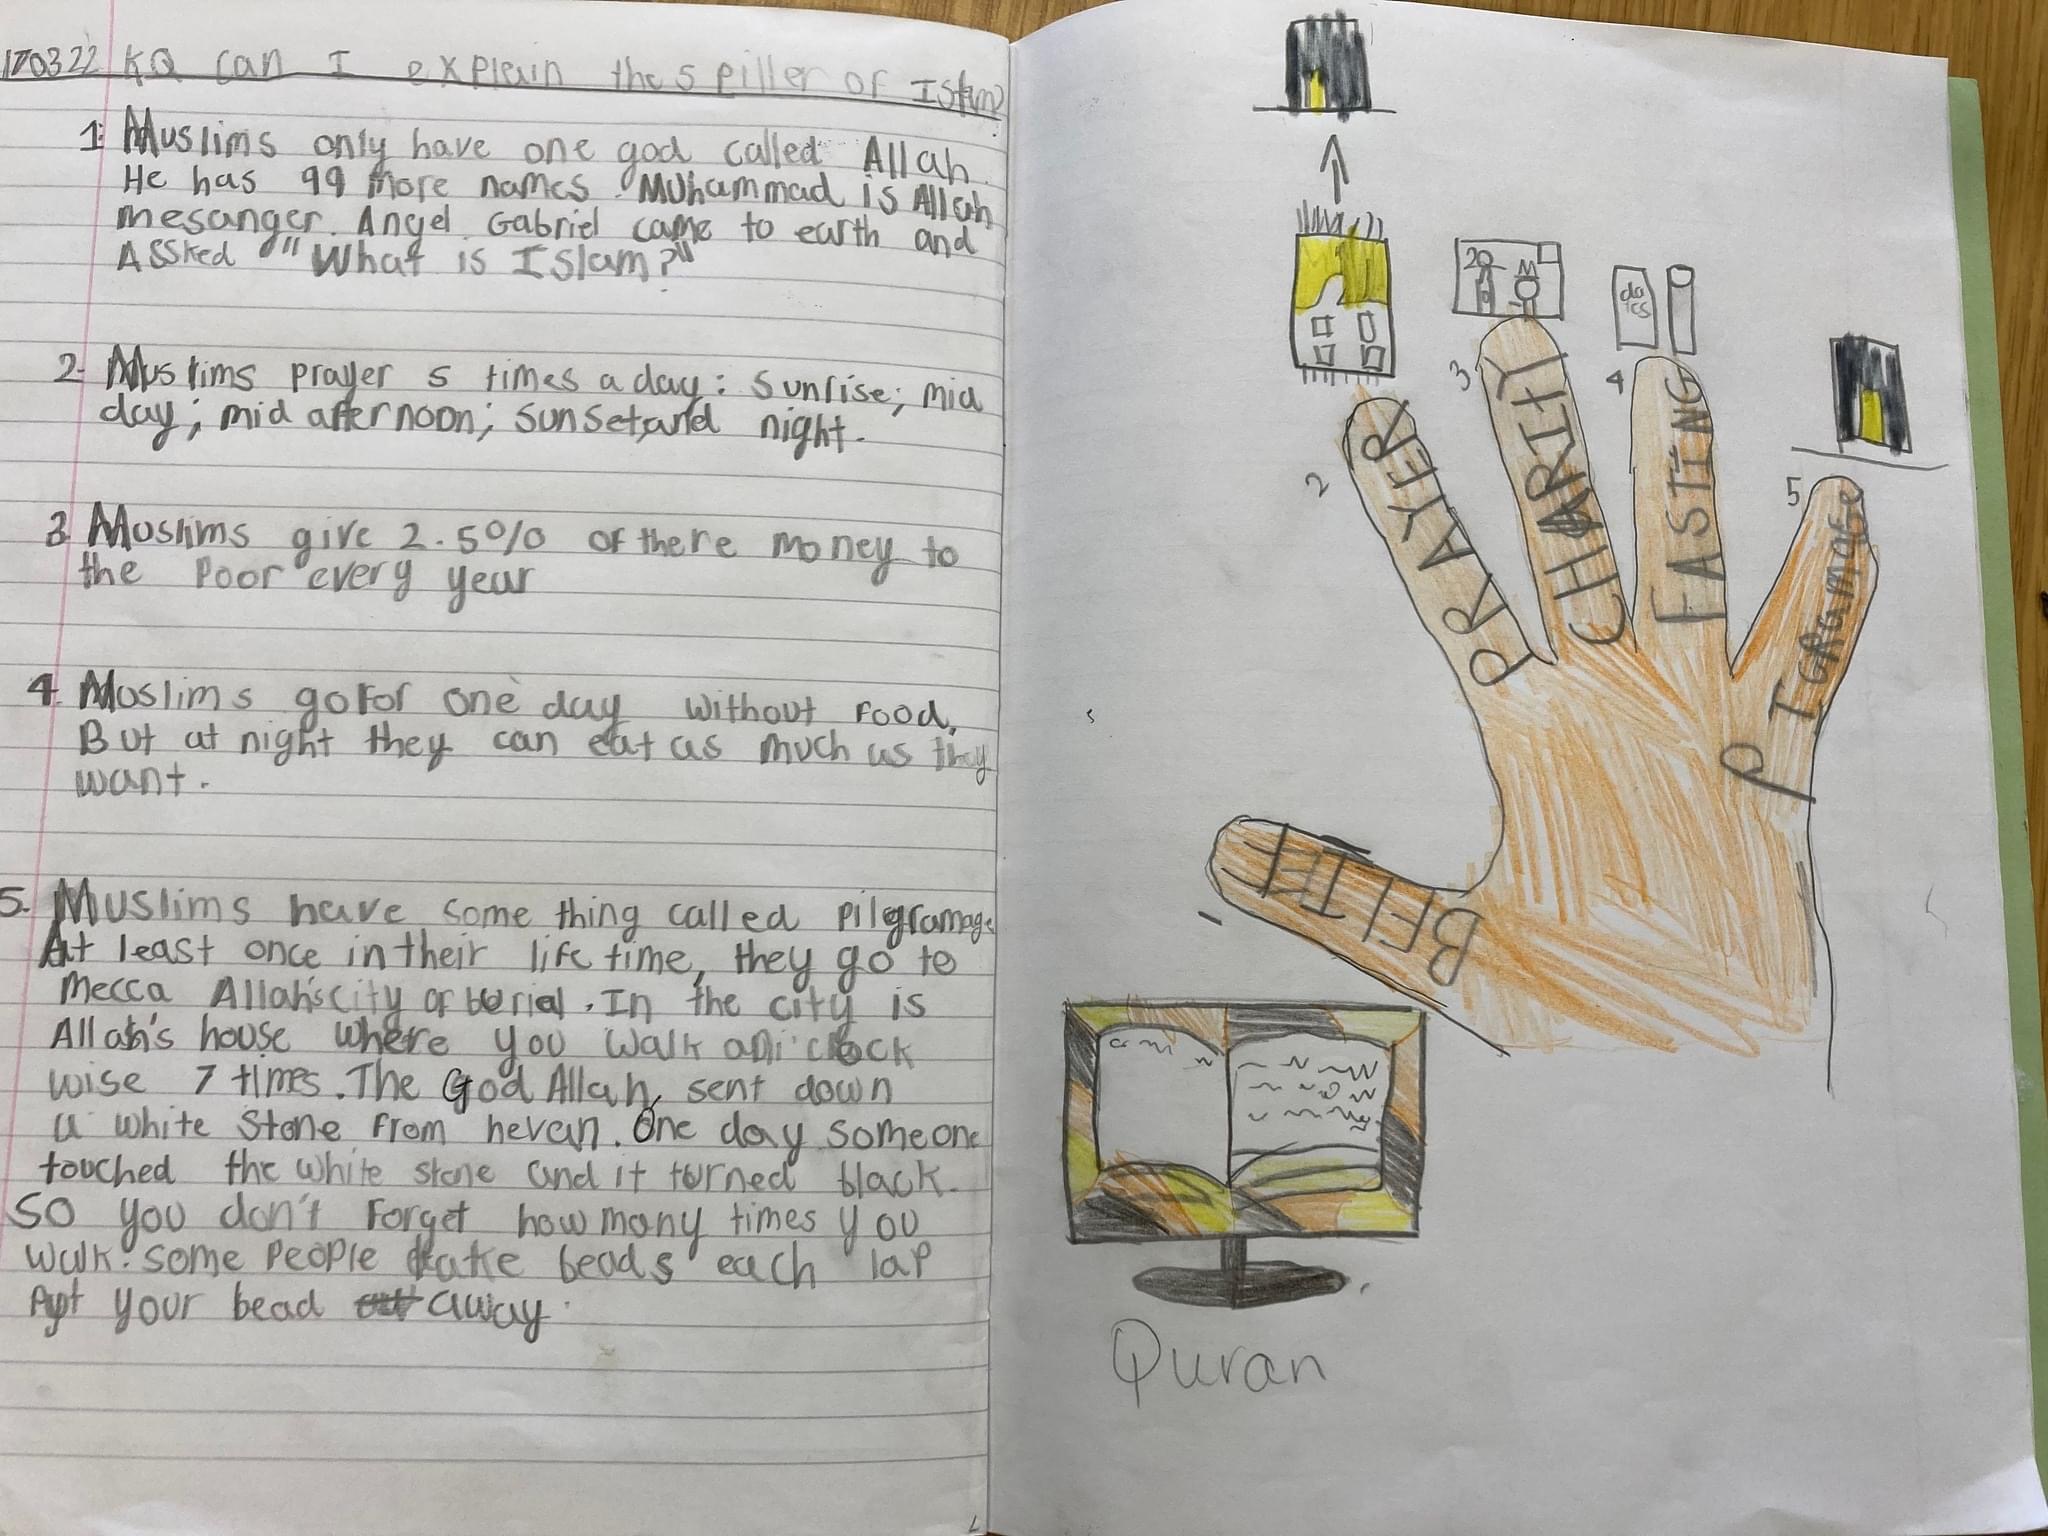 170322 KQ can I explain the 5 piller of Islam?
1. Muslims only have one god called Allah.
He has 99 more names. Muhammad is Allah
mesanger. Angel Gabriel came to earth and
ASSked "What is ISlam?"
2. Muslims prayer 5 times a day: Sunrise; mid
day; mid afternoon; sunset, and night.
3. Muslims give 2.5% of there money to
the Poor every year
4. Muslims go For one day without Food,
But at night they can eat as much us they
want.
5. Muslims have some thing called pilgramage
At least once in their life time, they go to
mecca Allah's city of burial. In the city is
Allah's house where you walk anti'clock
wise 7 times. The God Allah, sent down
a white Stone From hevan. One day someone
touched the white stone and it turned black.
SO you don't Forget how many times you
walk. Some People take beads each lap
Put your bead away.
2 PRAYER
3 CHARITY
4 FASTING
5 PILGRAMAGE
BELIEF
20
dates
Quran